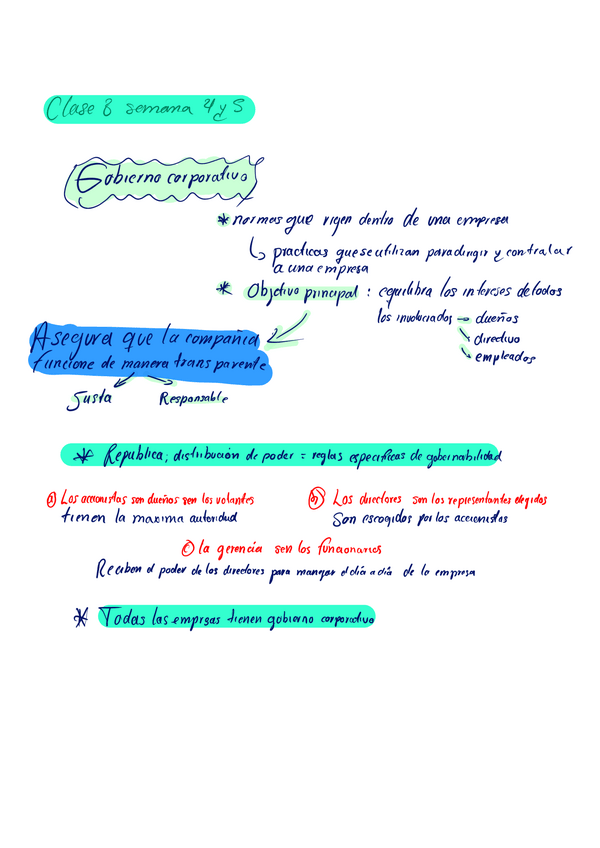 Clase 8 semana 4 y 5
Gobierno corporativo
* normas que rigen dentro de una empresa
practicas que se utilizan para dirigir y contralar
a una empresa
* Objetivo principal : equilibra los intereses de todos
los involucrados → dueños
directivo
empleados
Asegura que la compañia
funcione de manera transparente
Justa Responsable
* Republica, distribución de poder = reglas especificas de gobernabilidad
a) Los accionistas son dueños son los votantes
tienen la maxima autoridad
b) Los directores son los representantes elegidos
Son escogidos por los accionistas
c) la gerencia son los funcionarios
Reciben el poder de los directores para manejar el día a día de la empresa
* Todas las empresas tienen gobierno corporativo